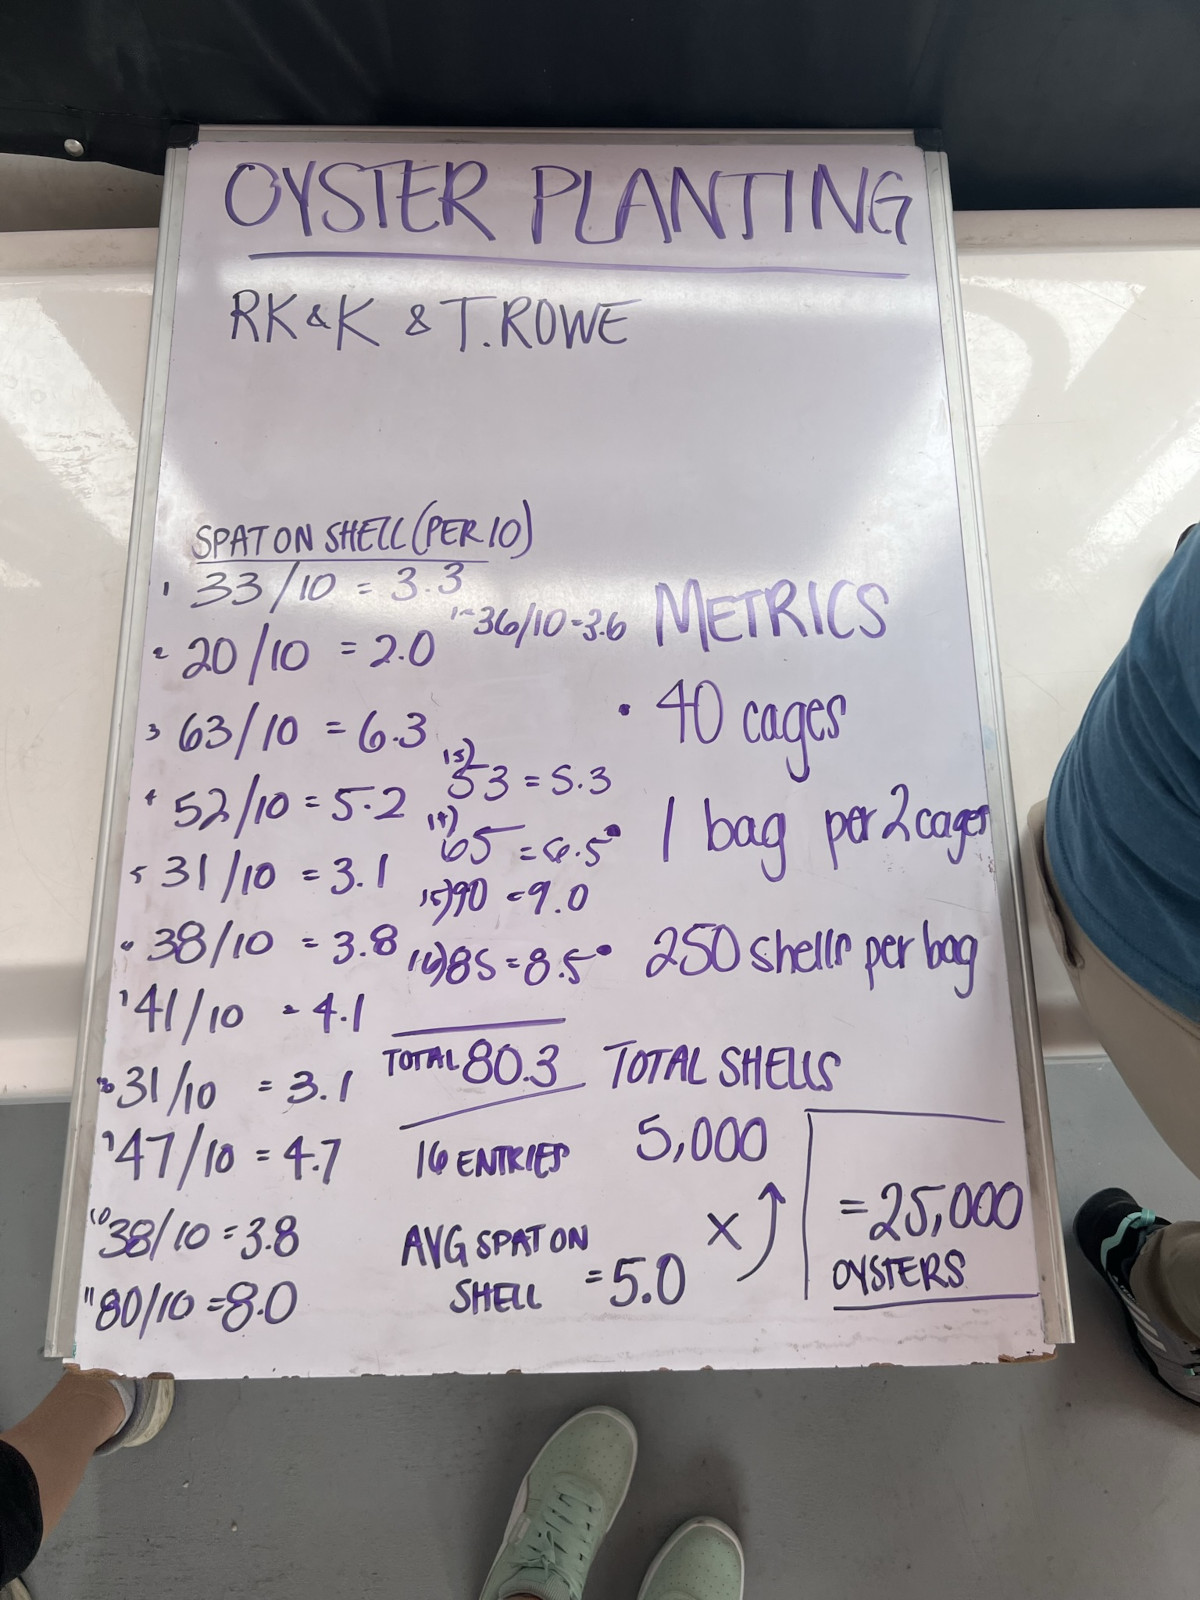 OYSTER PLANTING
RK&K & T.ROWE
SPAT ON SHELL (PER 10)
1 33/10 = 3.3
2 20/10 = 2.0
3 63/10 = 6.3
4 52/10 = 5.2
5 31/10 = 3.1
6 38/10 = 3.8
7 41/10 = 4.1
8 31/10 = 3.1
9 47/10 = 4.7
10 38/10 = 3.8
11 80/10 = 8.0
12 36/10 = 3.6
13) 53 = 5.3
14) 65 = 6.5
15) 90 = 9.0
16) 85 = 8.5
TOTAL 80.3
16 ENTRIES
AVG SPAT ON
SHELL = 5.0
METRICS
• 40 cages
• 1 bag per 2 cages
• 250 shells per bag
TOTAL SHELLS
5,000
x
= 25,000
OYSTERS